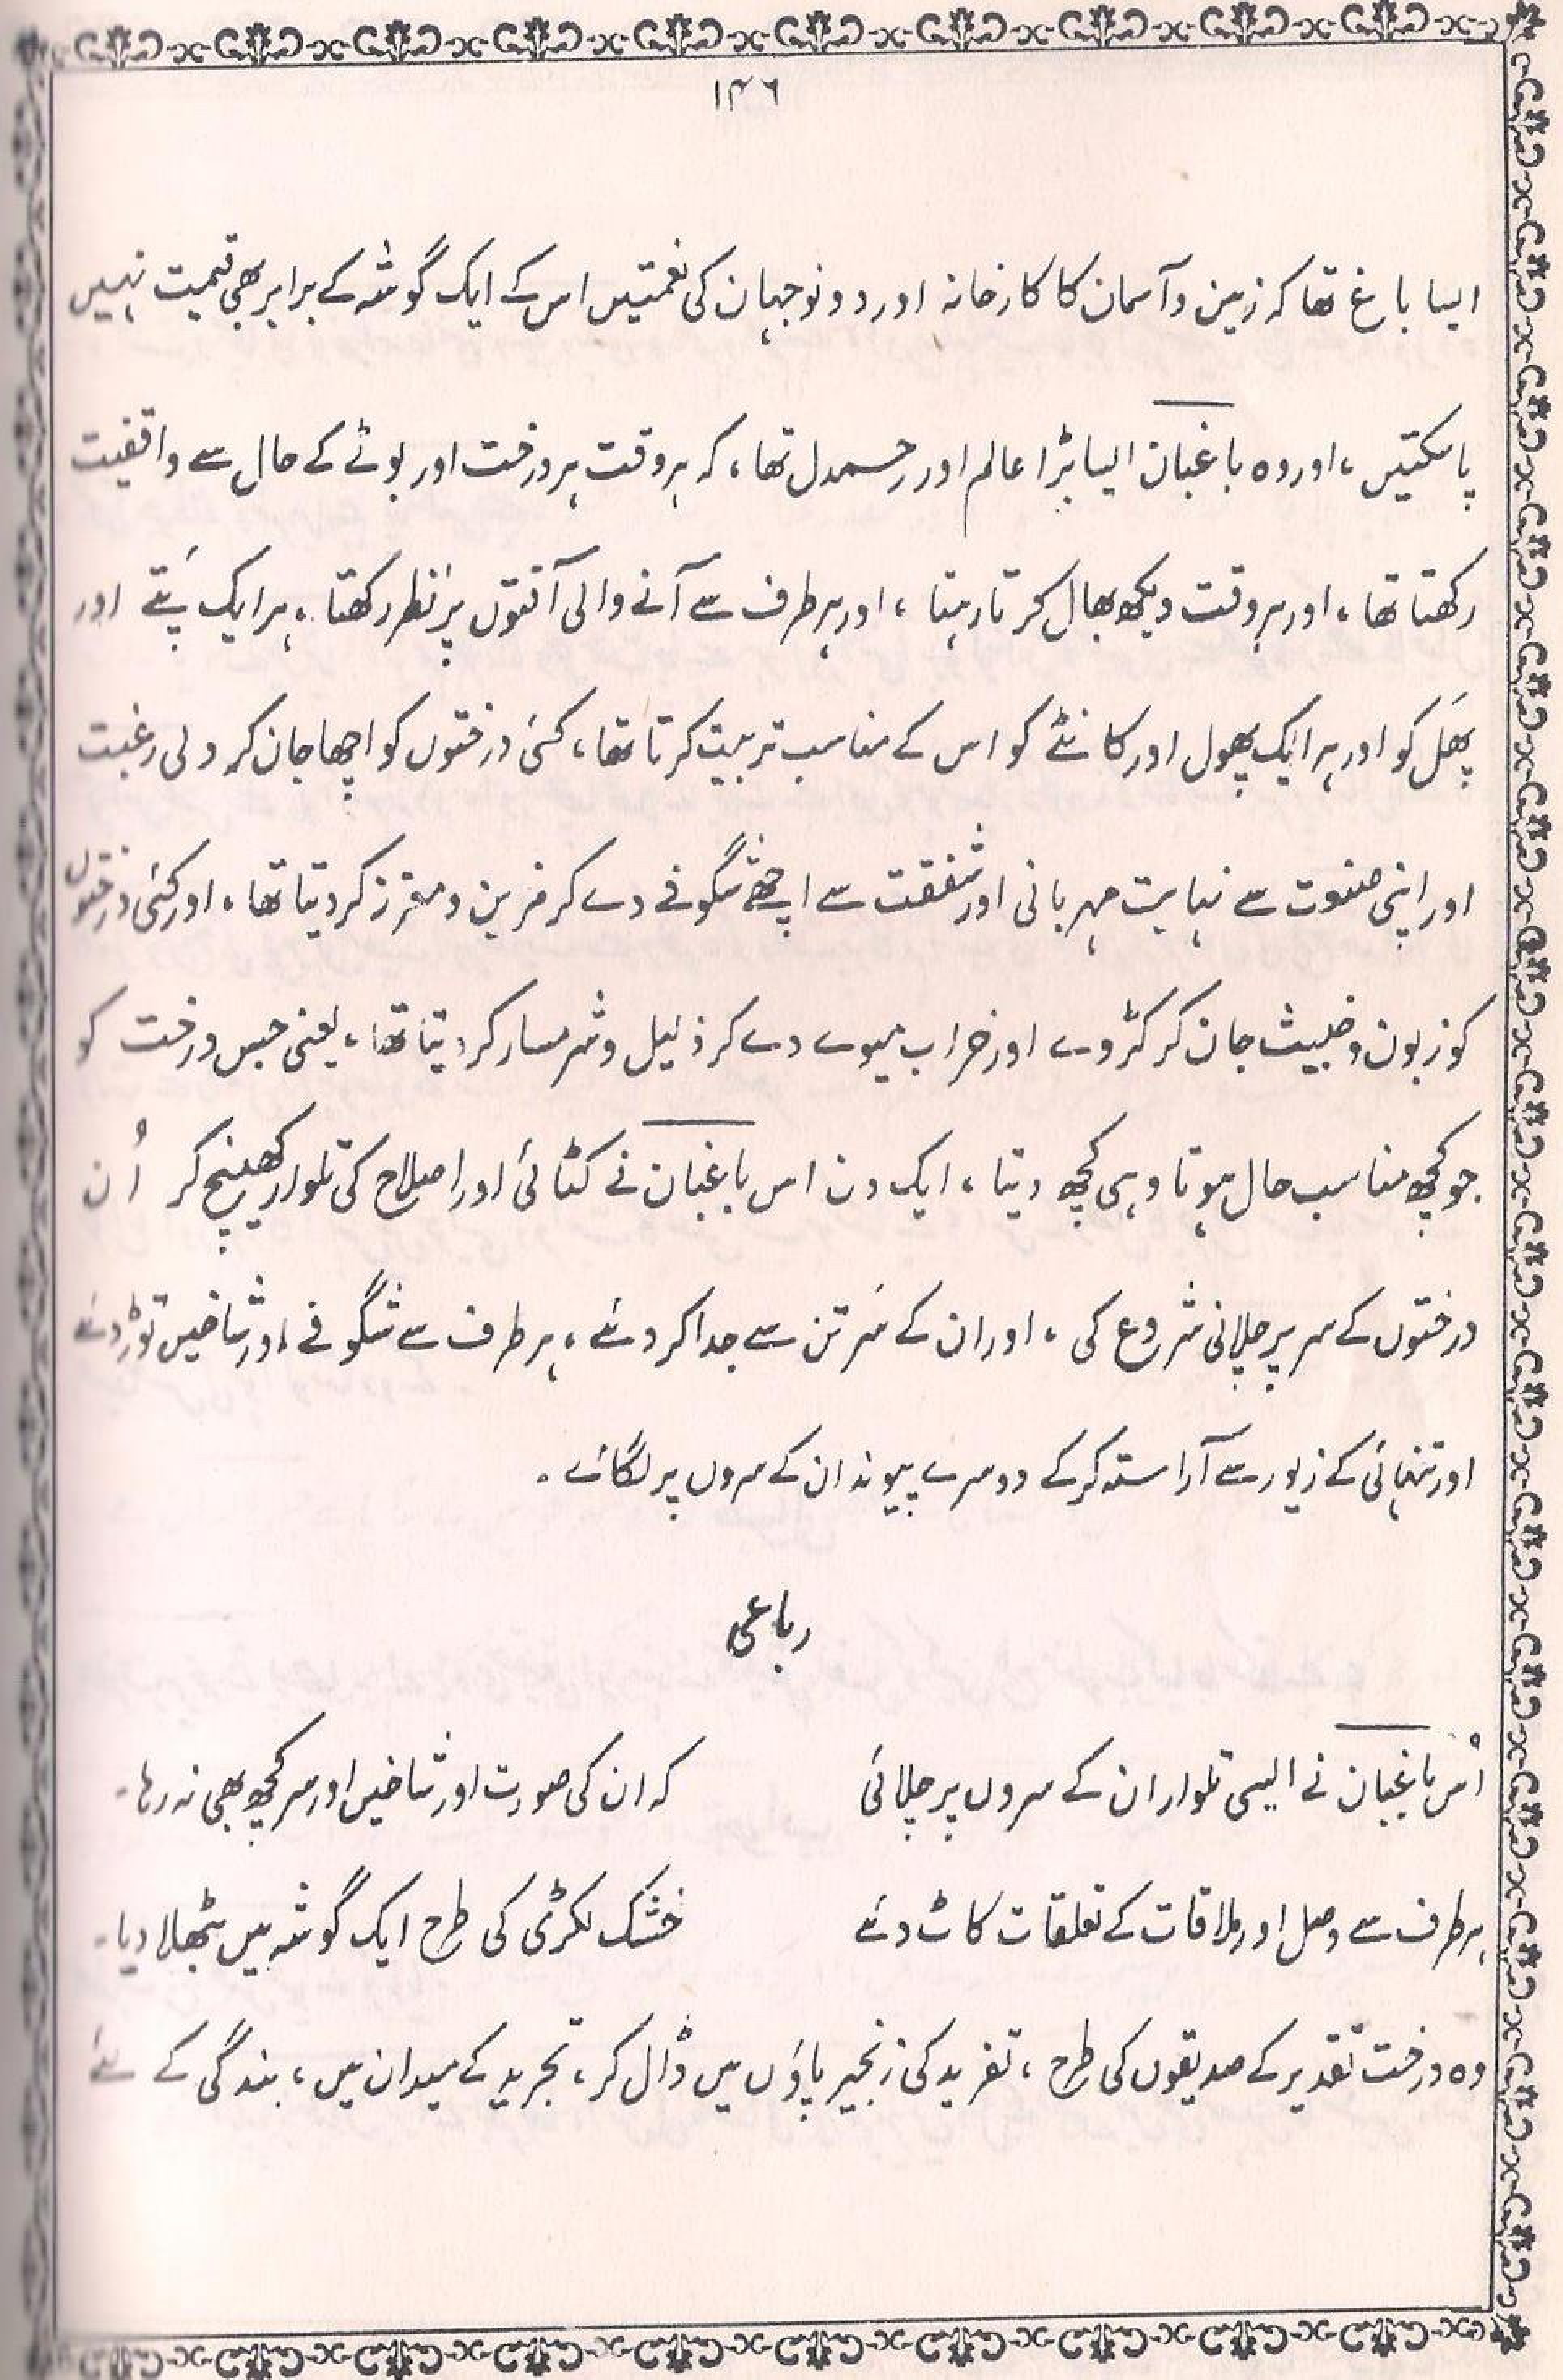 ۱۴۶
ایسا باغ تھا کہ زمین و آسمان کا کارخانہ اور دونو جہان کی نعمتیں اس کے ایک گوشہ کے برابر بھی قیمت نہیں
پا سکتیں ، اور وہ باغبان ایسا بڑا عالم اور رحمدل تھا ، کہ ہر وقت ہر درخت اور بوٹے کے حال سے واقفیت
رکھتا تھا ، اور ہر وقت دیکھ بھال کرتا رہتا ، اور ہر طرف سے آنے والی آفتوں پر نظر رکھتا ، ہر ایک پَتے اور
پھَل کو اور ہر ایک پھول اور کانٹے کو اس کے مناسب تربیت کرتا تھا ، کئی درختوں کو اچھا جان کر دلی رغبت
اور اپنی صنعت سے نہایت مہربانی اور شفقت سے اچھے شگوفے دے کر مزین و معزز کر دیتا تھا ، اور کئی درختوں
کو زبون و خبیث جان کر کڑوے اور خراب میوے دے کر ذلیل و شرمسار کر دیتا تھا ، یعنی جس درخت کو
جو کچھ مناسب حال ہوتا وہی کچھ دیتا ، ایک دن اس باغبان نے کٹائی اور اصلاح کی تلوار کھینچ کر اُن
درختوں کے سر پر چلانی شروع کی ، اور ان کے سَر تن سے جدا کر دئے ، ہر طرف سے شگوفے اور شاخیں توڑ دئے
اور تنہائی کے زیور سے آراستہ کر کے دوسرے پیوند ان کے سروں پر لگائے ۔
رباعی
اُس باغبان نے ایسی تلوار ان کے سروں پر چلائی کہ ان کی صورت اور شاخیں اور سر کچھ بھی نہ رہا ۔
ہر طرف سے وصل اور ملاقات کے تعلقات کاٹ دئے خشک لکڑی کی طرح ایک گوشہ میں بٹھلا دیا ۔
وہ درخت تقدیر کے صدیقوں کی طرح ، تفرید کی زنجیر پاؤں میں ڈال کر ، تجرید کے میدان میں ، بندگی کے لئے